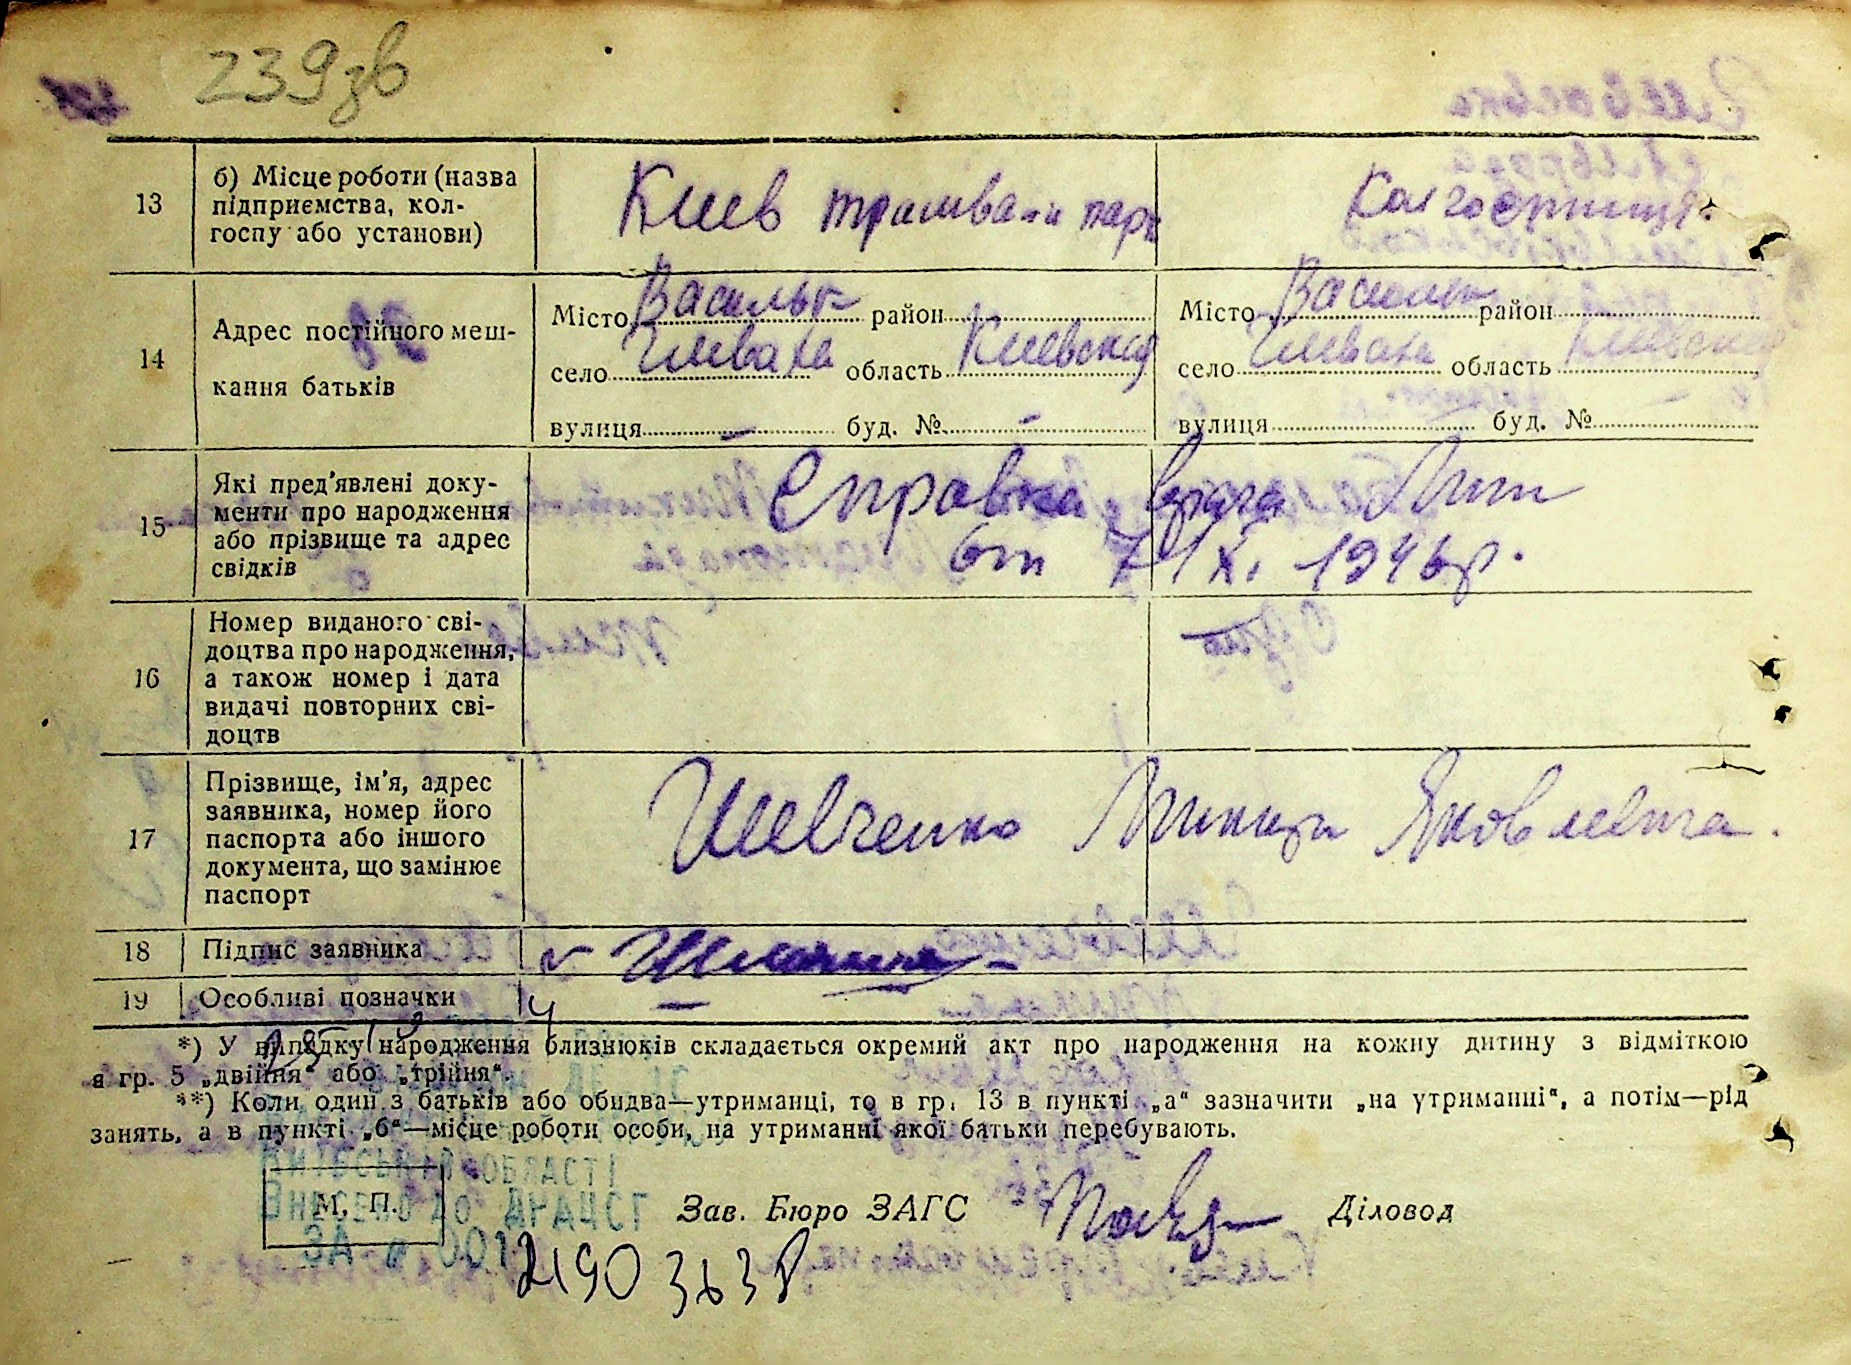 239зв
13 б) Місце роботи (назва
підприємства, кол-
госпу або установи)
Киев трамвани парк
Колгоспниця.
14 Адрес постійного меш-
кання батьків
Місто Васильк район
село Глеваха область Киевская
вулиця – буд. № –
Місто Васильк район
село Глеваха область Киевская
вулиця буд. №
15 Які пред'явлені доку-
менти про народження
або прізвище та адрес
свідків
Справка врача
от 7/IX. 1946р.
16 Номер виданого сві-
доцтва про народження,
а також номер і дата
видачі повторних сві-
доцтв
17 Прізвище, ім'я, адрес
заявника, номер його
паспорта або іншого
документа, що замінює
паспорт
Шевченко Никита Яковлевича.
18 Підпис заявника
19 Особливі позначки –
*) У випадку народження близнюків складається окремий акт про народження на кожну дитину з відміткою
в гр. 5 „двійня“ або „трійня“.
**) Коли один з батьків або обидва—утриманці, то в гр. 13 в пункті „а“ зазначити „на утриманні“, а потім—рід
занять, а в пункті „б“—місце роботи особи, на утриманні якої батьки перебувають.
ОБЛАСТІ
ВНЕСЕНО ДО ДРАЦСГ
М. П.
Зав. Бюро ЗАГС
Діловод
ЗА № 001